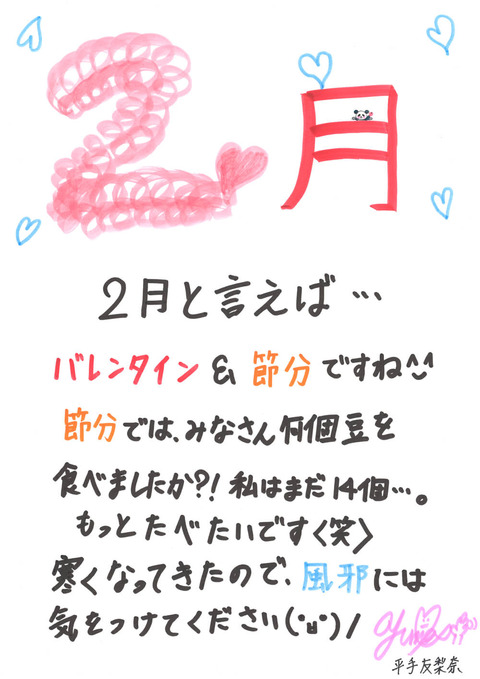 2月
2月と言えば…
バレンタイン & 節分ですね^^
節分では、みなさん何個豆を
食べましたか?! 私はまだ14個…。
もっとたべたいです〈笑〉
寒くなってきたので、風邪には
気をつけてください(°ㅂ°)/
平手友梨奈